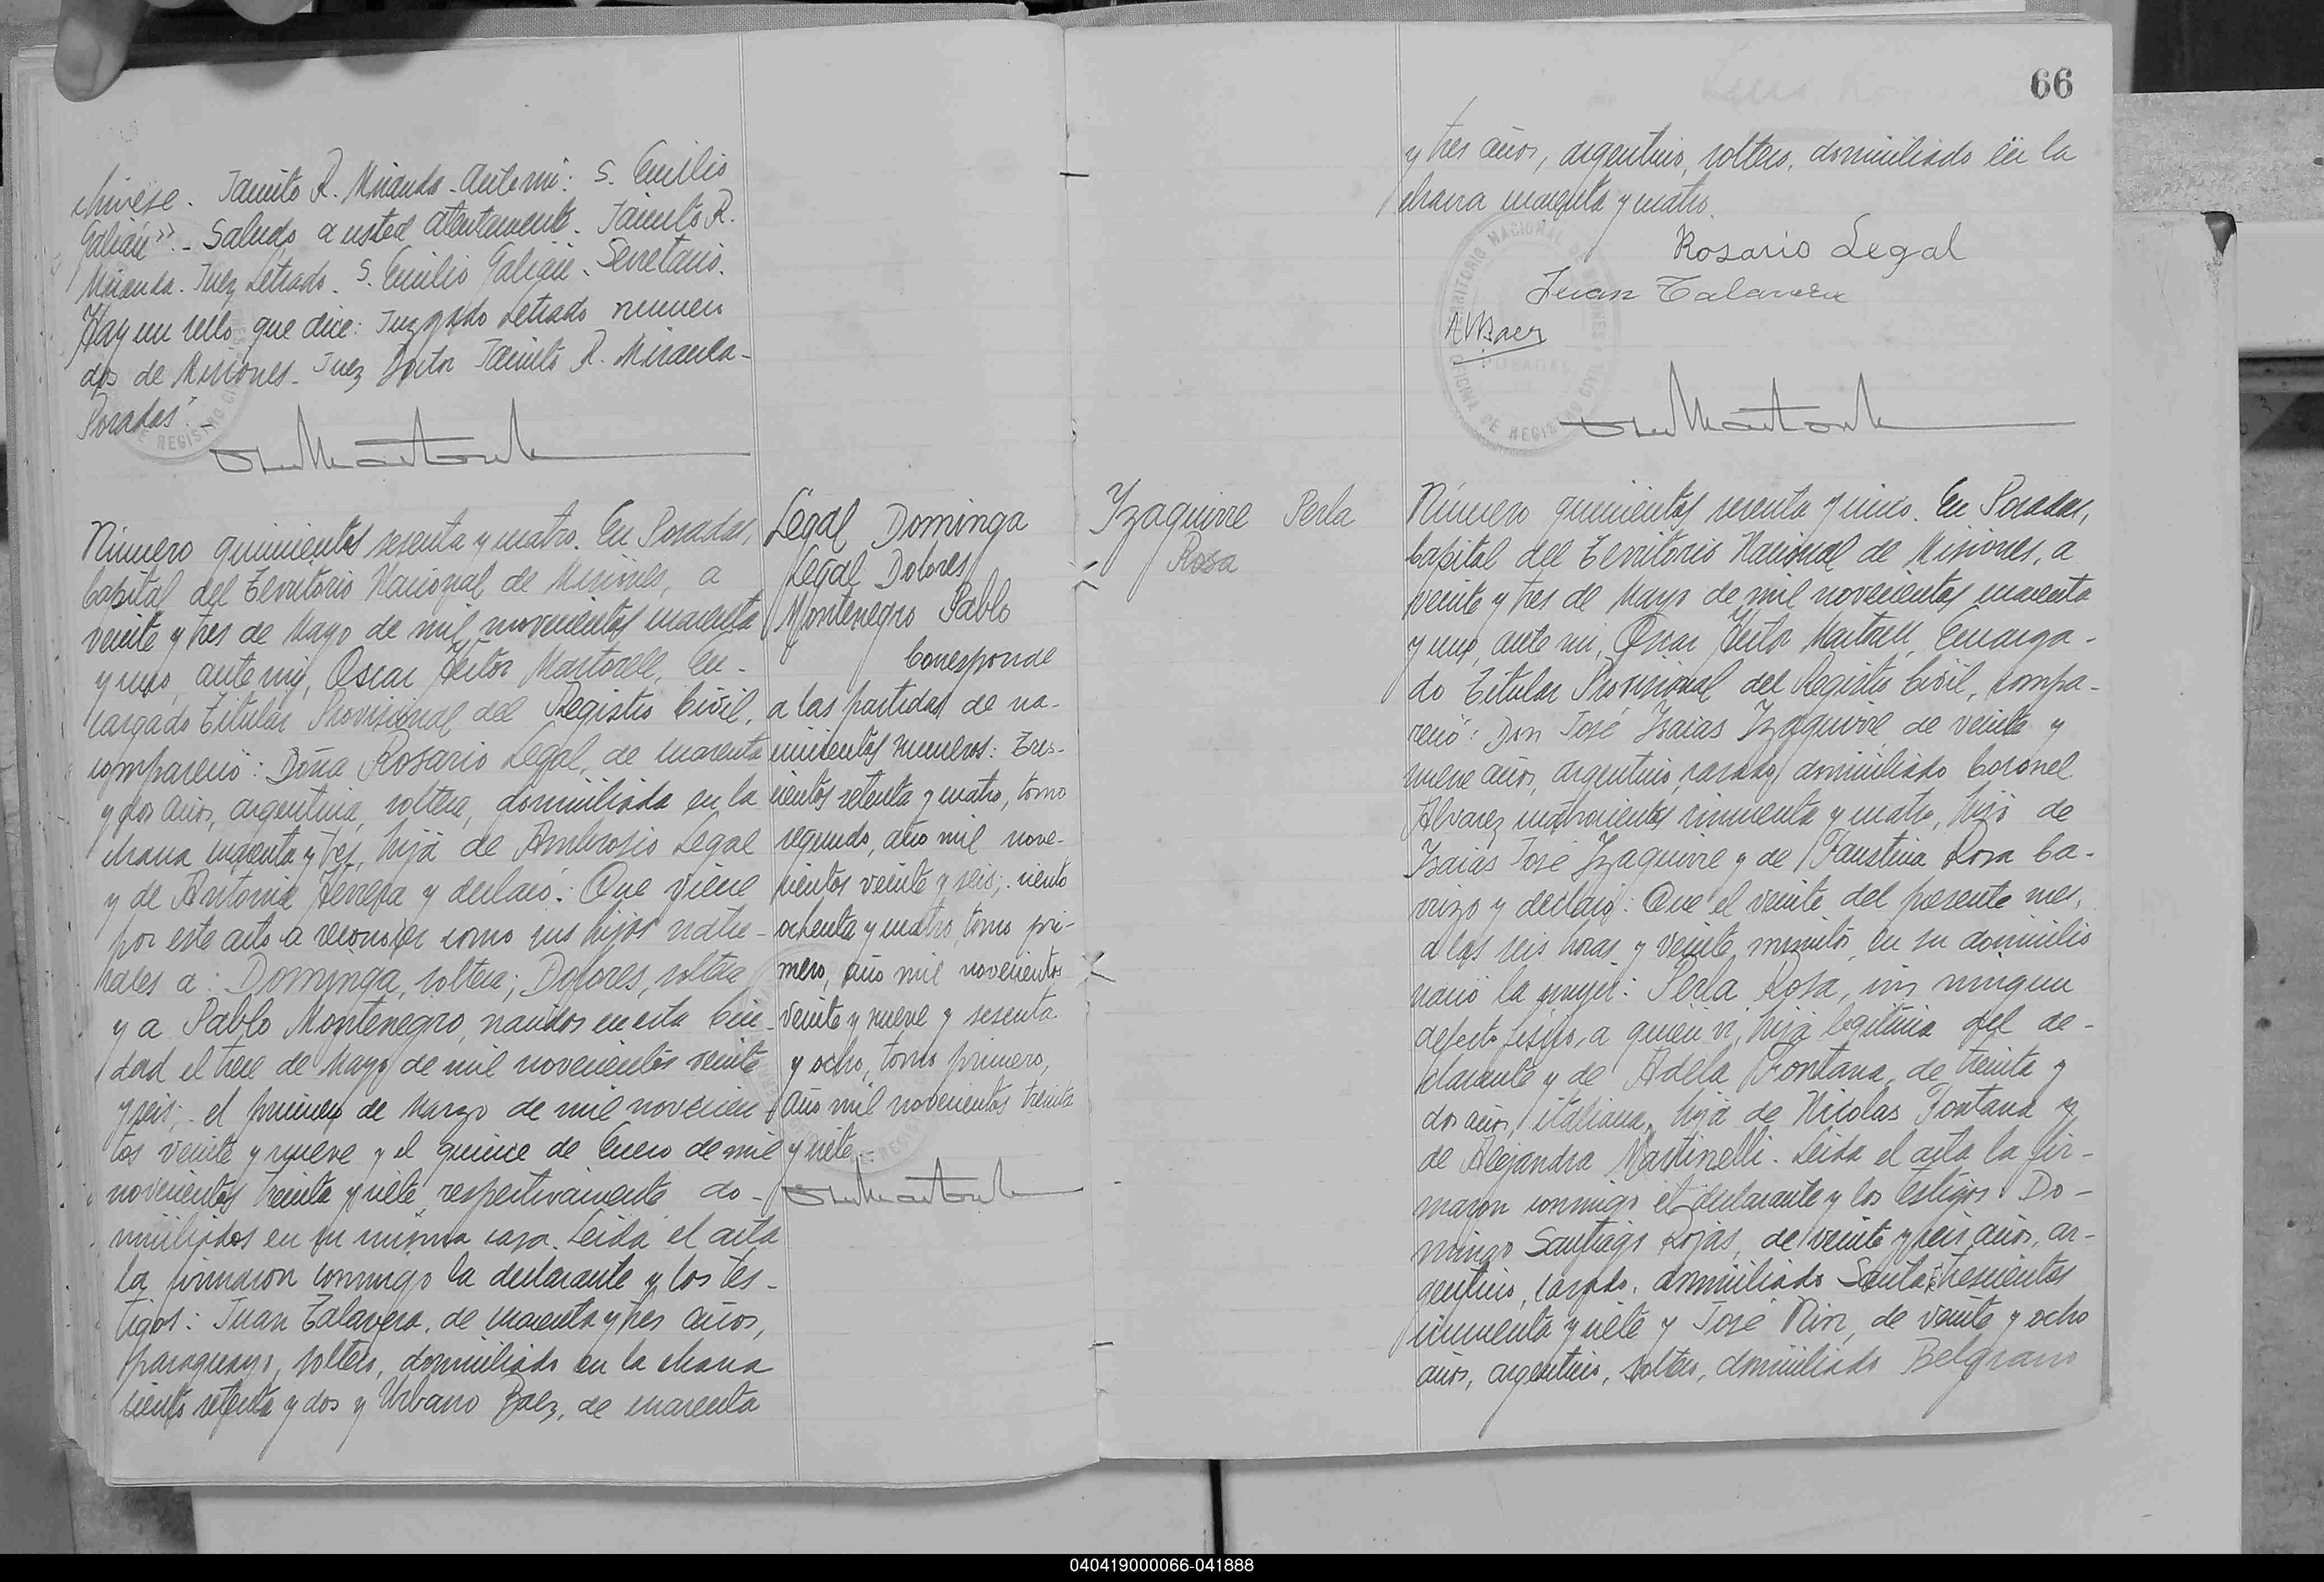 chívese. Jacinto R. Miranda. Ante mi: S. Emilio
Galián". - Saludo a usted atentamente. Jacinto R.
Miranda. Juez Letrado. S. Emilio Galián. Secretario.
Hay un sello que dice: Juzgado Letrado número
dos de Misiones. Juez Doctor Jacinto R. Miranda -
Posadas". -
Número quinientos sesenta y cuatro. En Posadas,
Capital del Territorio Nacional de Misiones, a
veinte y tres de Mayo de mil novecientos cuarenta
y uno, ante mi, Oscar Héctor Martorell, En-
cargado Titular Provisional del Registro Civil,
compareció: Doña Rosario Legal, de cuarenta
y dos años, argentina, soltera, domiciliada en la
chacra cuarenta y tres, hija de Ambrosio Legal
y de Antonia Herrera y declaró: Que viene
por este acto a reconocer como sus hijos natu-
rales a: Dominga, soltera; Dolores, soltera
y a Pablo Montenegro, nacidos en esta Ciu-
dad el trece de Mayo de mil novecientos veinte
y seis; el primero de Marzo de mil novecien-
tos veinte y nueve y el quince de Enero de mil
novecientos treinta y siete, respectivamente do-
miciliados en su misma casa. Leída el acta
la firmaron conmigo la declarante y los tes-
tigos: Juan Talavera, de cuarenta y tres años,
paraguayo, soltero, domiciliado en la chacra
ciento setenta y dos y Urbano Baez, de cuarenta
Legal Dominga
Legal Dolores
Montenegro Pablo
Corresponde
a las partidas de na-
cimientos números: Tres-
cientos setenta y cuatro, tomo
segundo, año mil nove-
cientos veinte y seis; ciento
ochenta y cuatro, tomo pri-
mero, año mil novecientos
veinte y nueve y sesenta
y ocho, tomo primero,
año mil novecientos treinta
y siete.-
66
y tres años, argentino, soltero, domiciliado en la
chacra cuarenta y cuatro.
Rosario Legal
Juan Talavera
U Baez
TERRITORIO NACIONAL DE MISIONES
POSADAS
OFICINA DE REGISTRO CIVIL
Yzaguirre Perla
Rosa
Número quinientos sesenta y cinco. En Posadas,
Capital del Territorio Nacional de Misiones, a
veinte y tres de Mayo de mil novecientos cuarenta
y uno, ante mi, Oscar Héctor Martorell, Encarga-
do Titular Provisional del Registro Civil, compa-
reció: Don José Isaias Yzaguirre de veinte y
nueve años, argentino, casado, domiciliado Coronel
Alvarez cuatrocientos cincuenta y cuatro, hijo de
Isaias José Yzaguirre y de Faustina Rosa Ca-
rrizo y declaró: Que el veinte del presente mes,
a las seis horas y veinte minutos, en su domicilio
nació la mujer: Perla Rosa, sin ningun
defecto físico, a quien vi, hija legítima del de-
clarante y de Adela Fontana, de treinta y
dos años, italiana, hija de Nicolas Fontana y
de Alejandra Martinelli. Leída el acta la fir-
maron conmigo el declarante y los testigos Do-
mingo Santiago Rojas, de veinte y seis años, ar-
gentino, casado, domiciliado Santa Fé trescientos
cincuenta y siete y José Nin, de veinte y ocho
años, argentino, soltero, domiciliado Belgrano
040419000066-041888